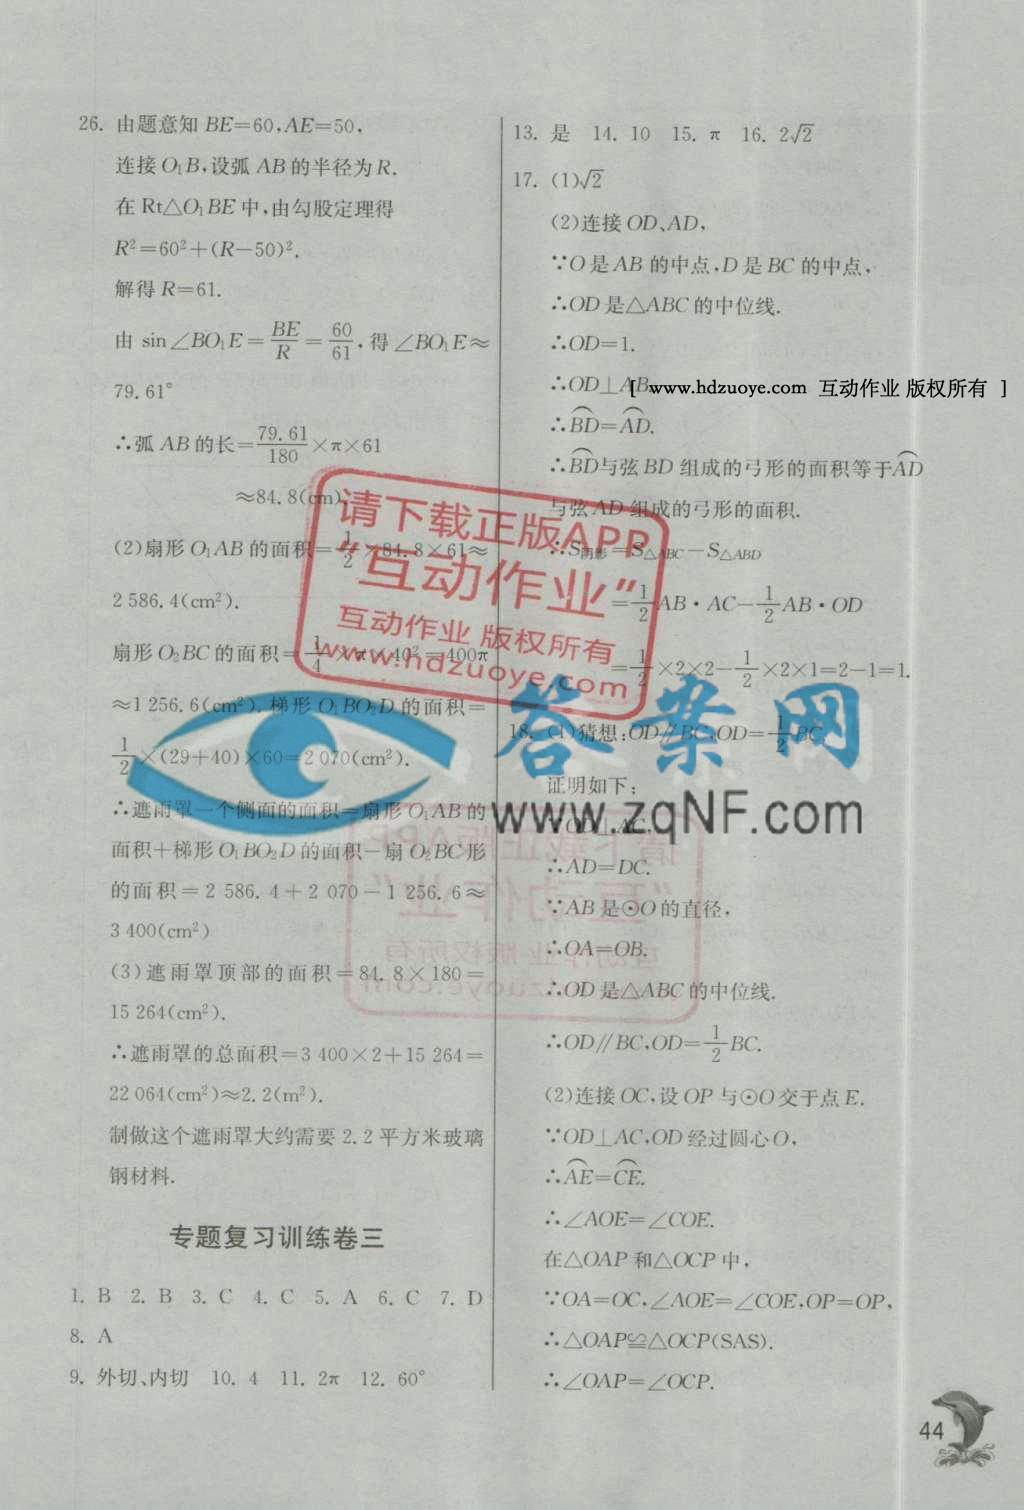 26. 由题意知 BE=60,AE=50,
连接 O₁B,设弧 AB 的半径为 R.
在 Rt△O₁BE 中,由勾股定理得
R²=60²+(R-50)².
解得 R=61.
由 sin∠BO₁E=BE/R=60/61,得∠BO₁E≈
79.61°
∴弧 AB 的长=79.61/180×π×61
≈84.8(cm).
(2)扇形 O₁AB 的面积=1/2×84.8×61≈
2 586.4(cm²).
扇形 O₂BC 的面积=1/4×π×40²=400π
≈1 256.6(cm²). 梯形 O₁BO₂D 的面积=
1/2×(29+40)×60=2 070(cm²).
∴遮雨罩一个侧面的面积=扇形 O₁AB 的
面积+梯形 O₁BO₂D 的面积-扇 O₂BC 形
的面积=2 586.4+2 070-1 256.6≈
3 400(cm²)
(3)遮雨罩顶部的面积=84.8×180=
15 264(cm²).
∴遮雨罩的总面积=3 400×2+15 264=
22 064(cm²)≈2.2(m²).
制做这个遮雨罩大约需要 2.2 平方米玻璃
钢材料.
专题复习训练卷三
1. B 2. B 3. C 4. C 5. A 6. C 7. D
8. A
9. 外切、内切 10. 4 11. 2π 12. 60°
13. 是 14. 10 15. π 16. 2√2
17. (1)√2
(2)连接 OD、AD,
∵O 是 AB 的中点,D 是 BC 的中点,
∴OD 是△ABC 的中位线.
∴OD=1.
∴OD⊥AB.
[ www.hdzuoye.com 互动作业 版权所有 ]
∴B͡D=A͡D.
∴B͡D与弦 BD 组成的弓形的面积等于A͡D
与弦 AD 组成的弓形的面积.
∴S阴影=S△ABC-S△ABD
=1/2AB·AC-1/2AB·OD
=1/2×2×2-1/2×2×1=2-1=1.
18. (1)猜想:OD∥BC,OD=1/2BC
证明如下:
∵OD⊥AC,
∴AD=DC.
∵AB 是⊙O 的直径,
∴OA=OB.
∴OD 是△ABC 的中位线.
∴OD∥BC,OD=1/2BC.
(2)连接 OC,设 OP 与⊙O 交于点 E.
∵OD⊥AC,OD 经过圆心 O,
∴A͡E=C͡E.
∴∠AOE=∠COE.
在△OAP 和△OCP 中,
∵OA=OC,∠AOE=∠COE,OP=OP,
∴△OAP≌△OCP(SAS).
∴∠OAP=∠OCP.
44
请下载正版APP
“互动作业”
互动作业 版权所有
www.hdzuoye.com
答案网
www.zqNF.com